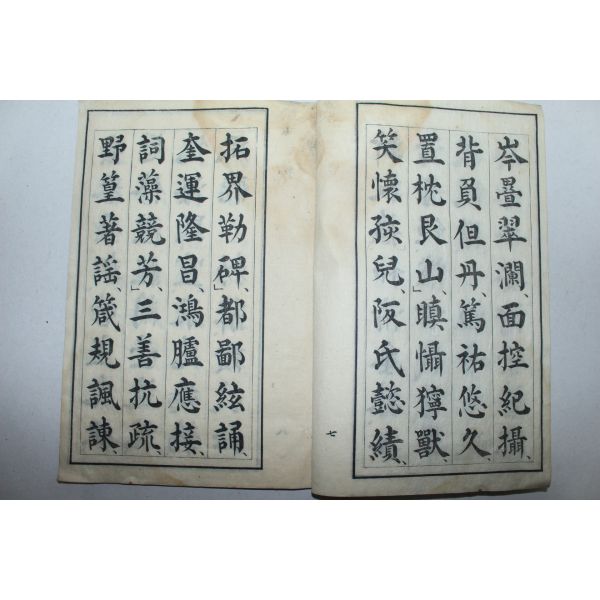 岑疊翠瀾、面控紀攝、
背負但丹、篤祐悠久、
置枕艮山、瞋懾獰獸、
笑懷孩兒、阪氏懿績、
七
拓界勒碑」都鄙絃誦、
奎運隆昌、鴻臚應接、
詞藻競芳」三善抗疏、
野篁著謡、箴規諷諫、